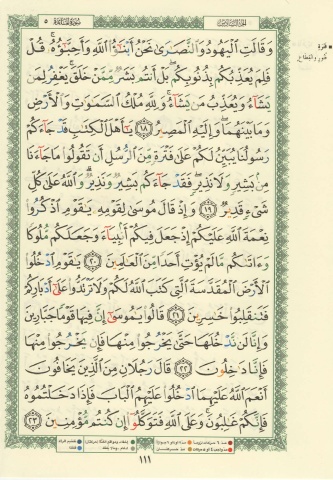 سُورَةُ المَائِدَةِ ٥
وَقَالَتِ ٱلْيَهُودُ وَٱلنَّصَٰرَىٰ نَحْنُ أَبْنَٰٓؤُا۟ ٱللَّهِ وَأَحِبَّٰٓؤُهُۥ ۚ قُلْ
فَلِمَ يُعَذِّبُكُم بِذُنُوبِكُم ۖ بَلْ أَنتُم بَشَرٌ مِّمَّنْ خَلَقَ ۚ يَغْفِرُ لِمَن
يَشَآءُ وَيُعَذِّبُ مَن يَشَآءُ ۚ وَلِلَّهِ مُلْكُ ٱلسَّمَٰوَٰتِ وَٱلْأَرْضِ
وَمَا بَيْنَهُمَا ۖ وَإِلَيْهِ ٱلْمَصِيرُ ١٨ يَٰٓأَهْلَ ٱلْكِتَٰبِ قَدْ جَآءَكُمْ
رَسُولُنَا يُبَيِّنُ لَكُمْ عَلَىٰ فَتْرَةٍ مِّنَ ٱلرُّسُلِ أَن تَقُولُوا۟ مَا جَآءَنَا
مِنۢ بَشِيرٍ وَلَا نَذِيرٍ ۖ فَقَدْ جَآءَكُم بَشِيرٌ وَنَذِيرٌ ۗ وَٱللَّهُ عَلَىٰ كُلِّ
شَىْءٍ قَدِيرٌ ١٩ وَإِذْ قَالَ مُوسَىٰ لِقَوْمِهِۦ يَٰقَوْمِ ٱذْكُرُوا۟
نِعْمَةَ ٱللَّهِ عَلَيْكُمْ إِذْ جَعَلَ فِيكُمْ أَنۢبِيَآءَ وَجَعَلَكُم مُّلُوكًا
وَءَاتَىٰكُم مَّا لَمْ يُؤْتِ أَحَدًا مِّنَ ٱلْعَٰلَمِينَ ٢٠ يَٰقَوْمِ ٱدْخُلُوا۟
ٱلْأَرْضَ ٱلْمُقَدَّسَةَ ٱلَّتِى كَتَبَ ٱللَّهُ لَكُمْ وَلَا تَرْتَدُّوا۟ عَلَىٰٓ أَدْبَارِكُمْ
فَتَنقَلِبُوا۟ خَٰسِرِينَ ٢١ قَالُوا۟ يَٰمُوسَىٰٓ إِنَّ فِيهَا قَوْمًا جَبَّارِينَ
وَإِنَّا لَن نَّدْخُلَهَا حَتَّىٰ يَخْرُجُوا۟ مِنْهَا فَإِن يَخْرُجُوا۟ مِنْهَا
فَإِنَّا دَٰخِلُونَ ٢٢ قَالَ رَجُلَانِ مِنَ ٱلَّذِينَ يَخَافُونَ
أَنْعَمَ ٱللَّهُ عَلَيْهِمَا ٱدْخُلُوا۟ عَلَيْهِمُ ٱلْبَابَ فَإِذَا دَخَلْتُمُوهُ
فَإِنَّكُمْ غَٰلِبُونَ ۚ وَعَلَى ٱللَّهِ فَتَوَكَّلُوٓا۟ إِن كُنتُم مُّؤْمِنِينَ ٢٣
١١١